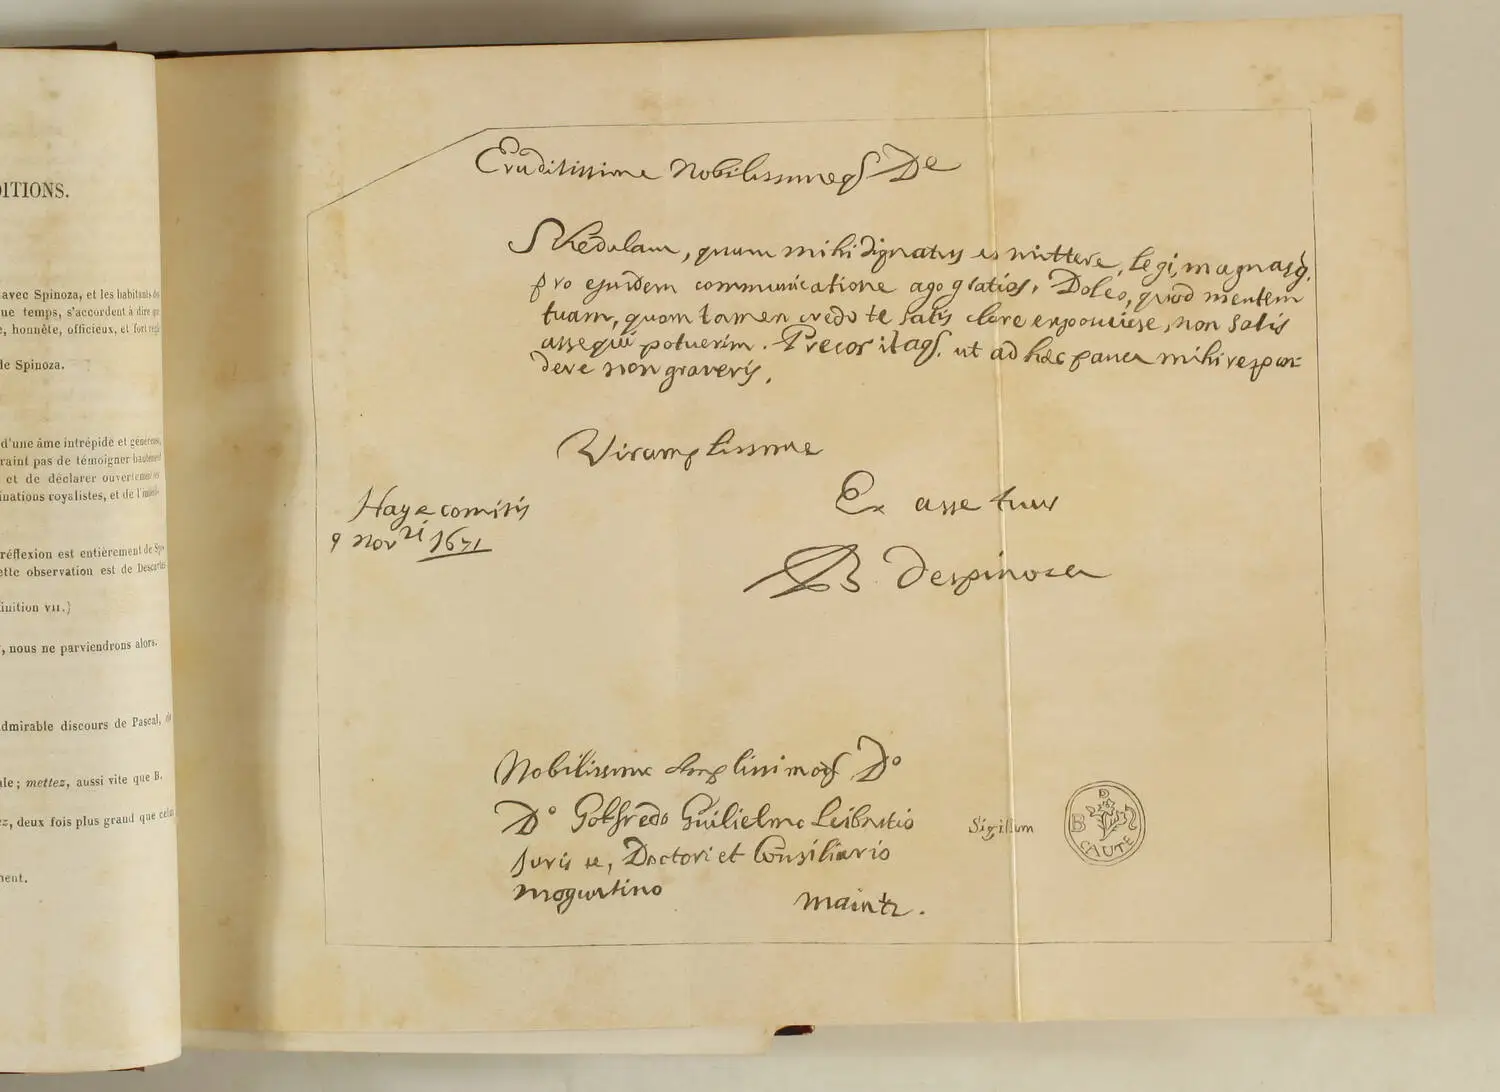 DITIONS.
avec Spinoza, et les habitants
que temps, s'accordent à dire
, honnête, officieux, et fort
de Spinoza.
d'une âme intrépide et
raint pas de témoigner hautement
et de déclarer ouvertement
inations royalistes, et de
réflexion est entièrement de
ette observation est de Descartes
inition VII.)
, nous ne parviendrons alors.
dmirable discours de Pascal,
ale ; mettez, aussi vite que B.
ez, deux fois plus grand que
ment.
Eruditissime Nobilissimeq De
Schedulam, quam mihi dignatus es mittere, legi, magnasq.
pro ejusdem communicatione ago gratias. Doleo, quod mentem
tuam, quam tamen credo te satis clare exposuisse, non satis
assequi potuerim. Precor itaq. ut ad hæc pauca mihi respon-
dere non graveris.
Vir amplissime
Ex asse tuus
Hagæ comitis
9 novri 1671
B despinoza
Nobilissimo Amplissimoq Do
Do Gotfredo Guilielmo Leibnitio
Juris Doctori et Consiliario
moguntino
maintz.
Sigillum
B D S
CAUTE